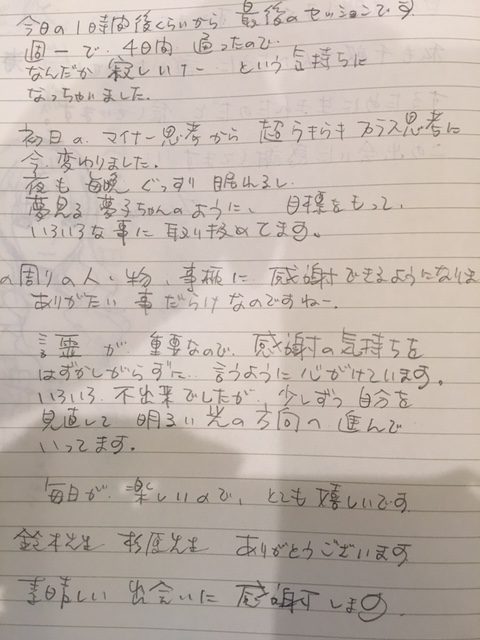 今日の1時間後くらいから 最後のセッションです
週一で、4日間 通ったので
なんだか 寂しいなー という気持ちに
なっちゃいました。
初日の マイナー思考から 超うきうき プラス思考に
今、変わりました。
夜も 毎晩 ぐっすり 眠れるし
夢見る 夢子ちゃんのように、目標をもって、
いろいろな事に 取り組めてます。
の周りの人・物、事柄に 感謝できるようになりま
ありがたい 事 だらけ なのですねー。
言霊 が 重要なので 感謝の気持ちを
はずかしがらずに 言うように 心がけています。
いろいろ 不出来でしたが、少しずつ 自分を
見直して 明るい光の方向へ 進んで
いってます。
毎日が 楽しいので、とても 嬉しいです
鈴木先生 杉原先生 ありがとうございます
素晴しい 出会いに 感謝します。